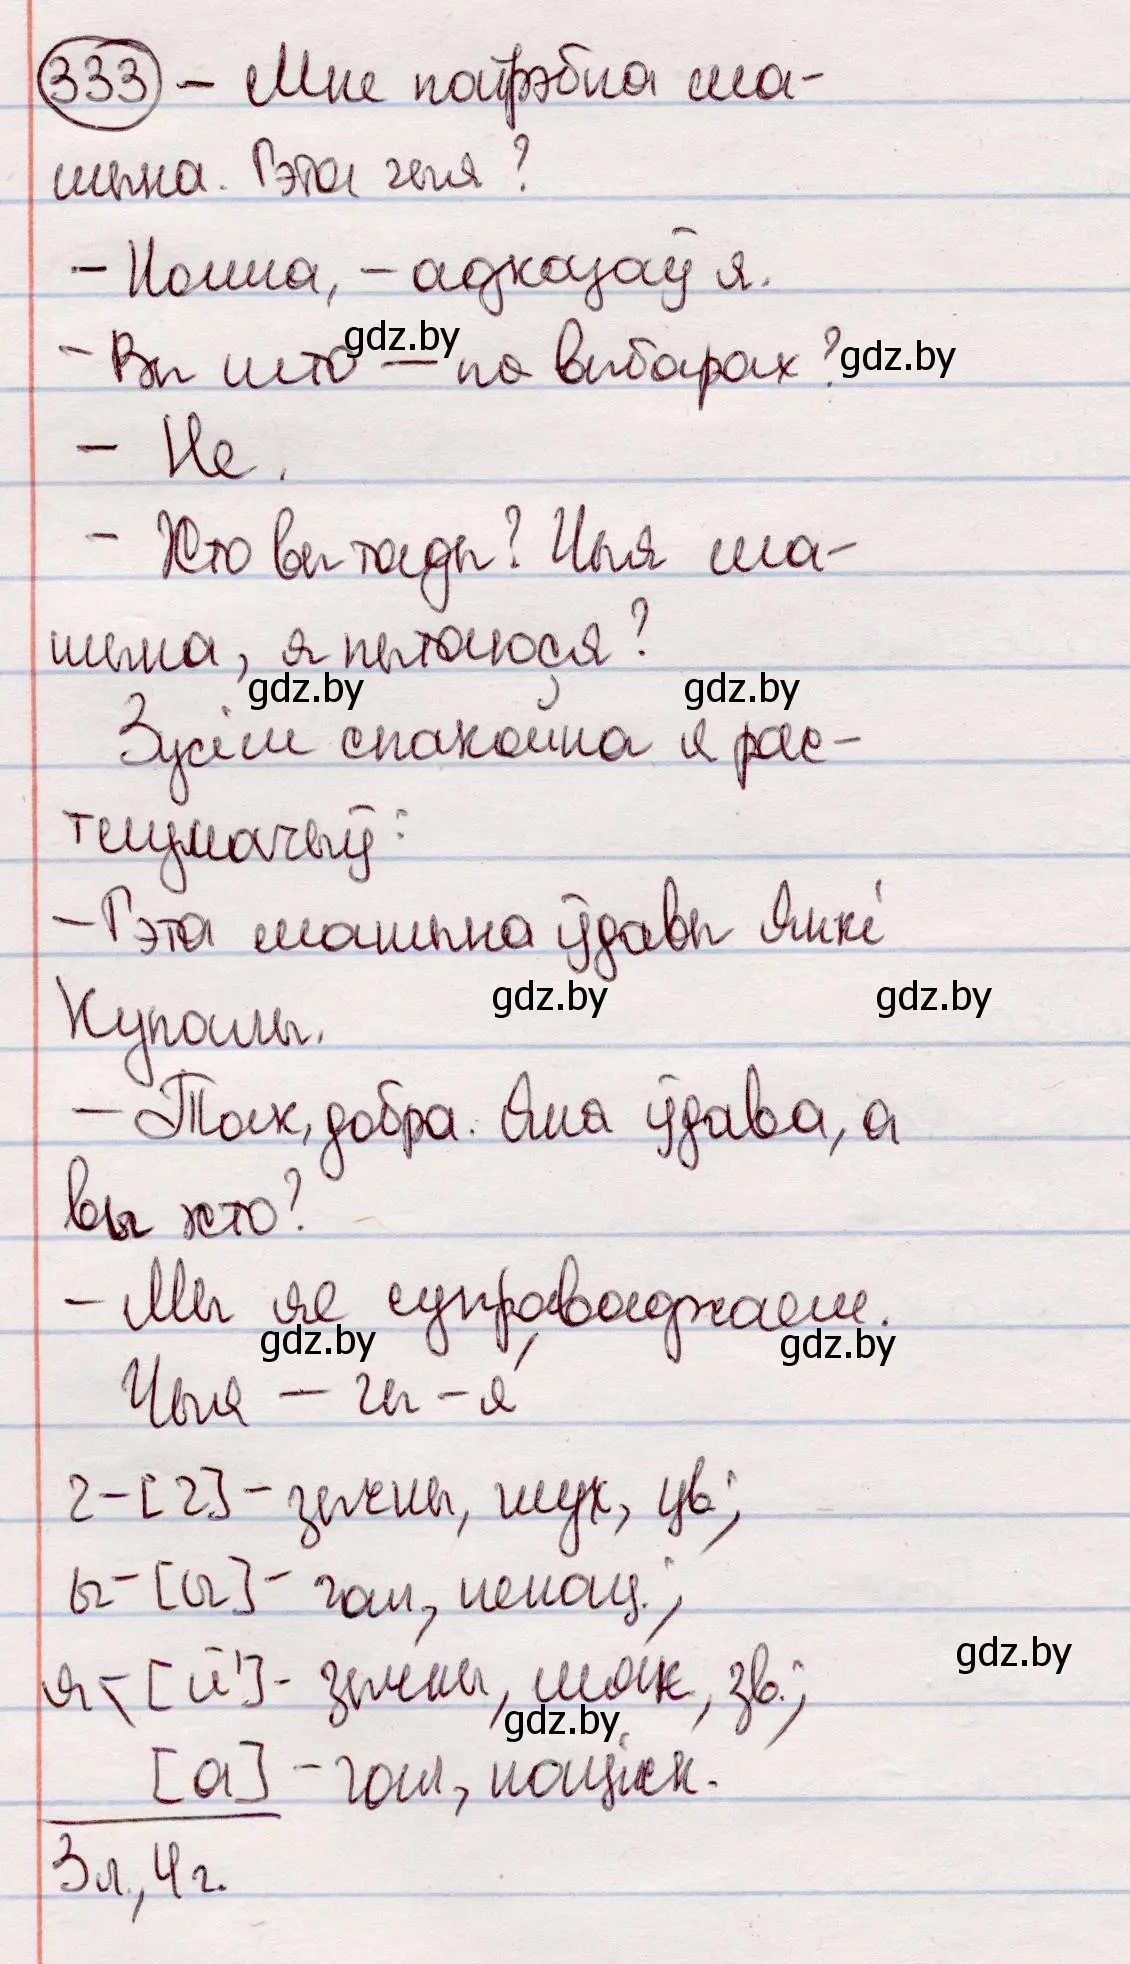 333 - Мне патрэбна ма-
шына. Гэта чыя?
- Наша, - адказаў я.
gdz.by
gdz.by
- Вы што - па выбарах?
- Не.
- Хто вы тады? Чыя ма-
шына, я пытаюся?
gdz.by gdz.by
Зусім спакойна я рас-
тлумачыў:
- Гэта машына ўдавы Янкі
gdz.by gdz.by
Купалы.
- Так, добра. Яна ўдава, а
вы хто?
- Мы яе суправаджаем.
gdz.by gdz.by
Чыя - чы-я́
ч-[ч]-зычны, глух, цв.;
ы-[ы]-гал, ненац.;
gdz.by
я-[й']-зычны, мяк, зв.;
gdz.by
[а]-гал, націск.
3л., 4г.